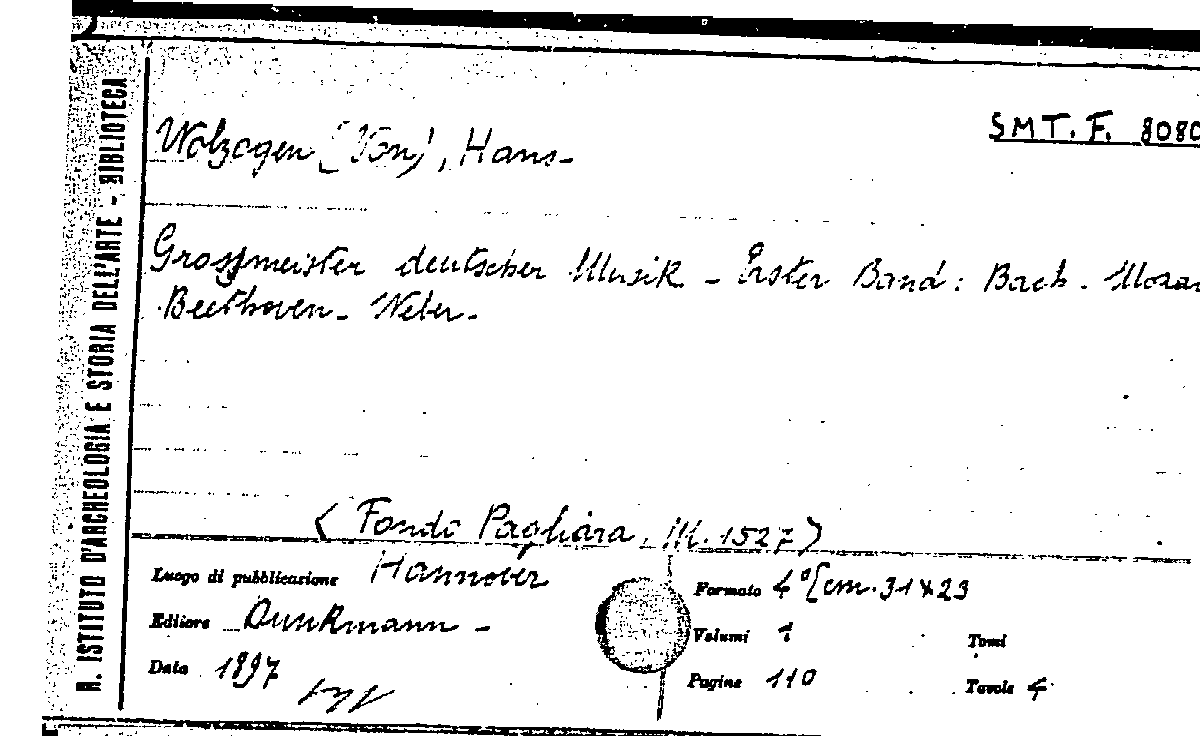 R. ISTITUTO D'ARCHEOLOGIA E STORIA DELL'ARTE - BIBLIOTECA
SMT. F. 8080
Wolzogen (Von), Hans-
Grossmeister deutscher Musik - Erster Band: Bach. Mozar
Beethoven- Weber-
(Fondo Pagliara, M. 1527)
Luogo di pubblicazione Hannover
Editore Dunkmann -
Data 1897
Formato 4º [cm. 31x23
Volumi 1 Tomi
Pagine 110 Tavole 4